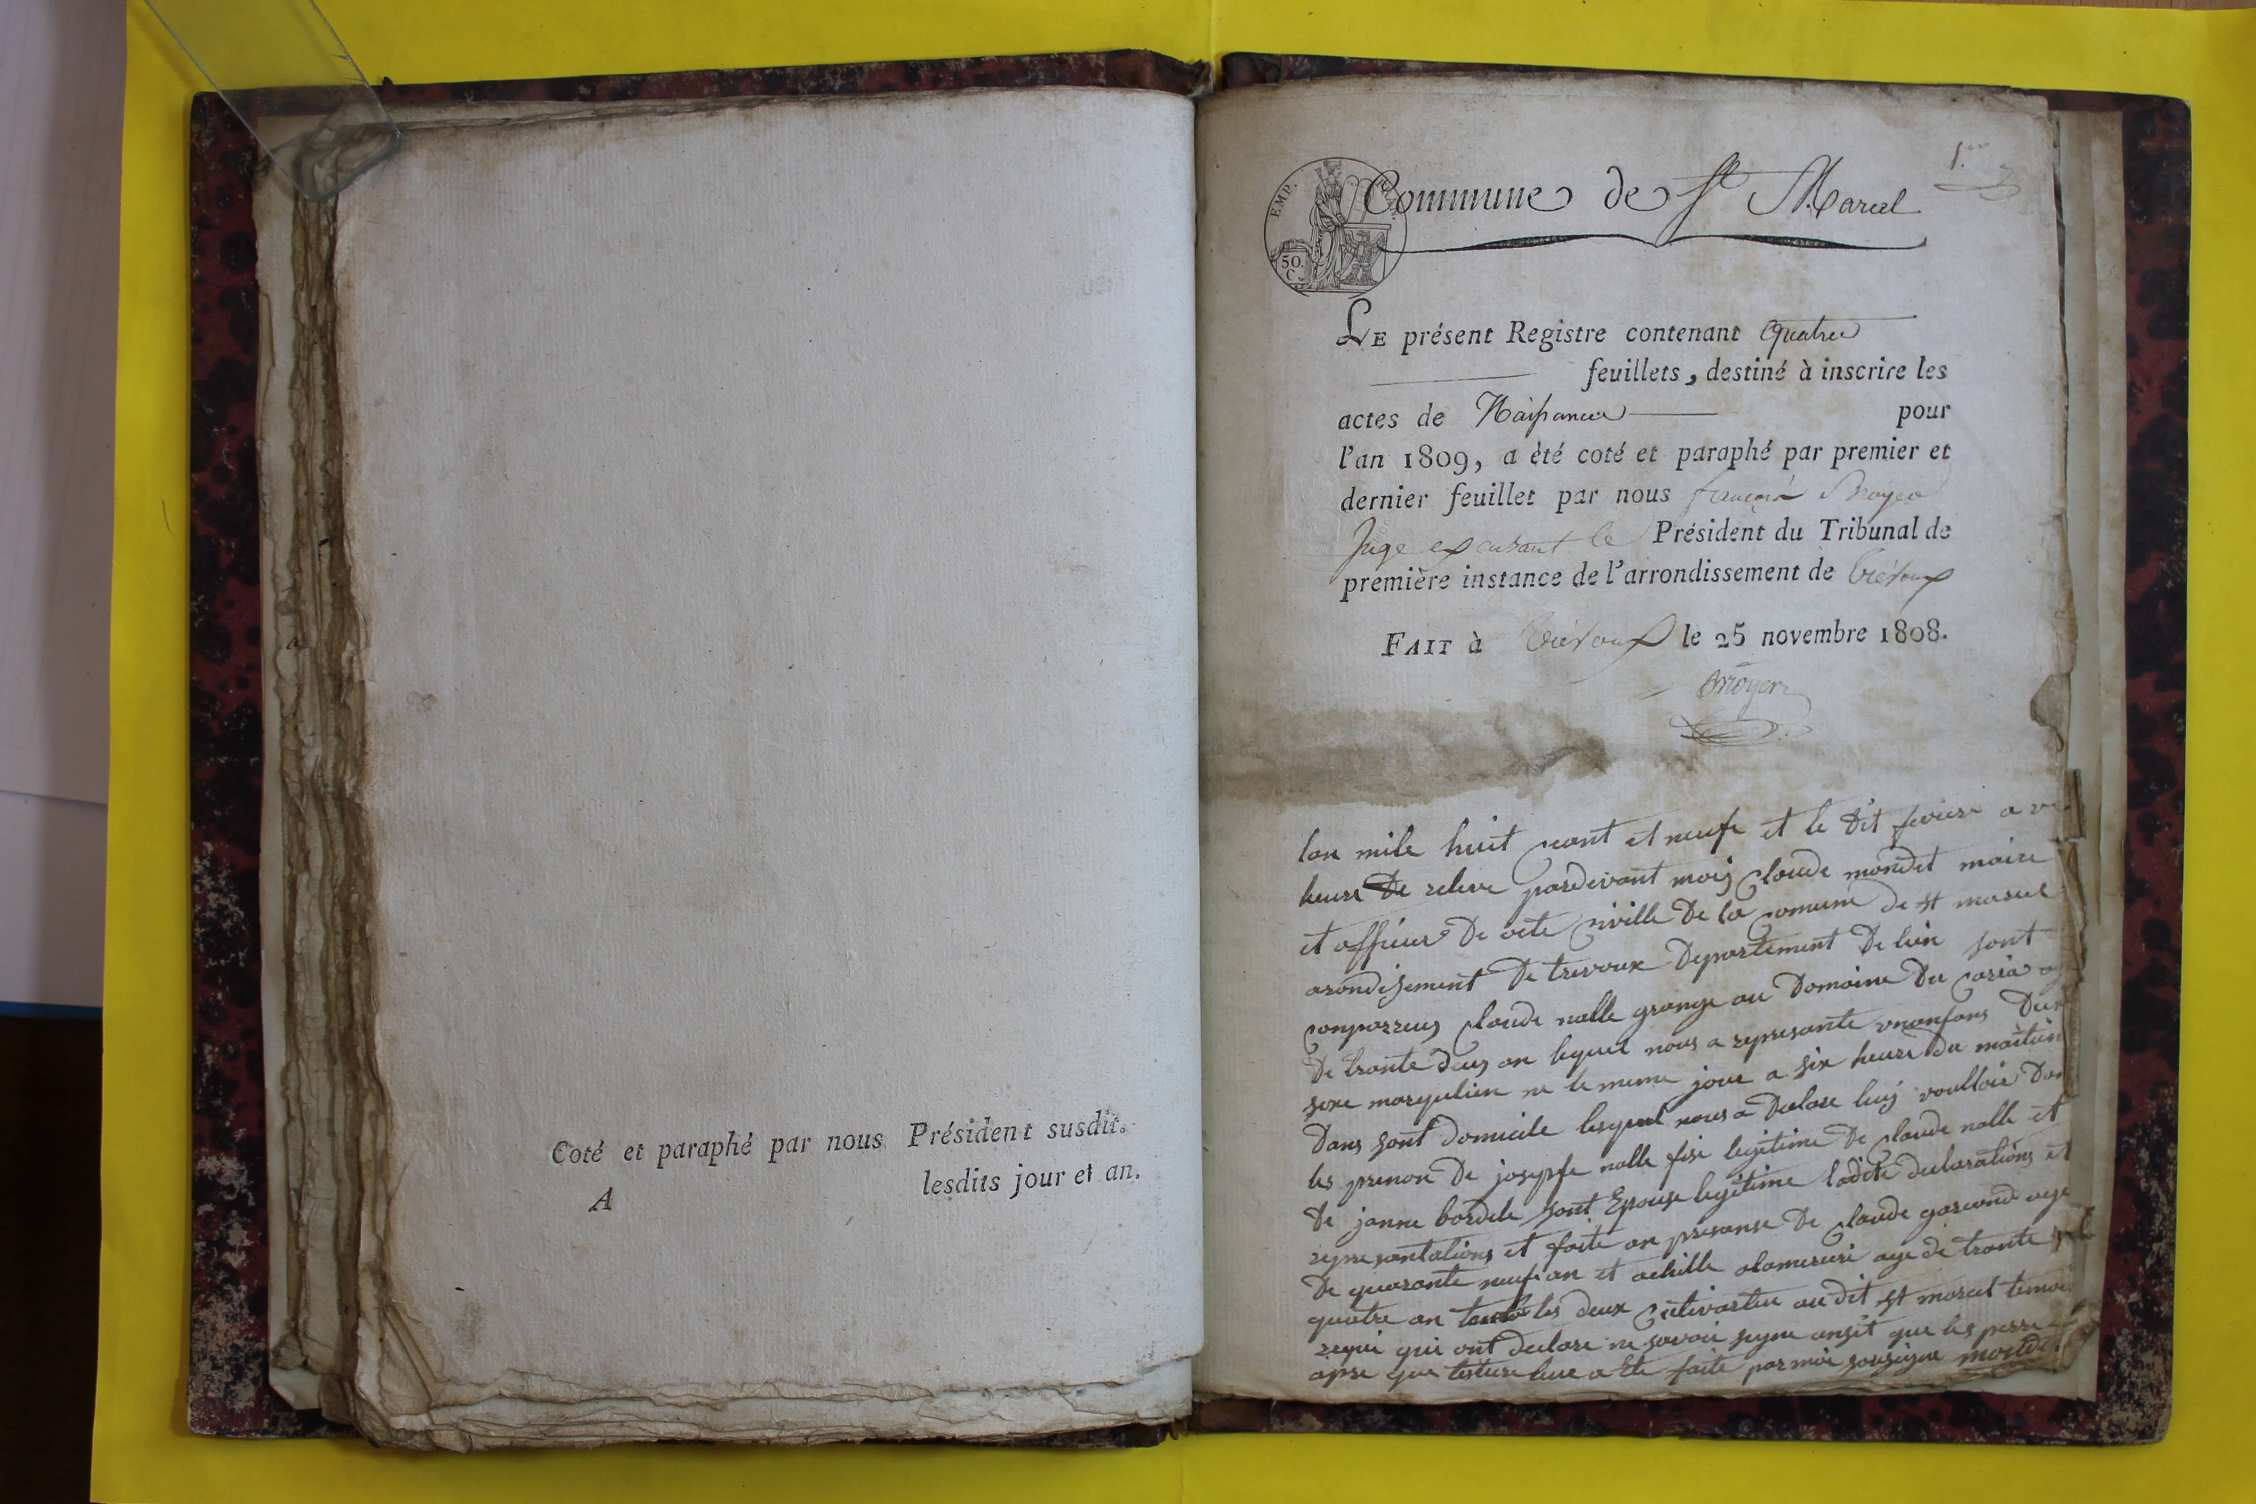 Coté et paraphé par nous Président susdit.
lesdits jour et an.
A
1.er
EMP.
50.
C.
Commune de St Marcel
LE présent Registre contenant quatre
feuillets, destiné à inscrire les
actes de Naissance pour
l'an 1809, a été coté et paraphé par premier et
dernier feuillet par nous françois Moyer
Juge exerçant le Président du Tribunal de
première instance de l'arrondissement de trévoux
FAIT à trévoux le 25 novembre 1808.
Moyer
lan mile huit cant et neufe et le dit fevrier a
heure de releve pardevant moij Claude mondet maire
et officier de acte civille de la comune de st marcel
arondisement de trevoux departement de lain sont
comparreuj Claude nalle grange au domaine du caria
de trante deuj an lequel nous a represante unanfans du
sexe masqulien ne le meme jour a six heure du maitin
dans sont domicile lesquel nous a declare luij voulloir
les prenon de josepfe nalle fise legitime de claude nalle et
de janne bordele sont Epouse legitime ladite declarations et
represantations et faite an presanse de claude garcond age
de quarante neuf an et achille alamerceri age de trante
quatre an les deux cultivarteu au dit st marcel
requi qui ont declare ne savoir signe ansit que les perre
apre que lecture leur a Ete faite par moi sousigne mondet